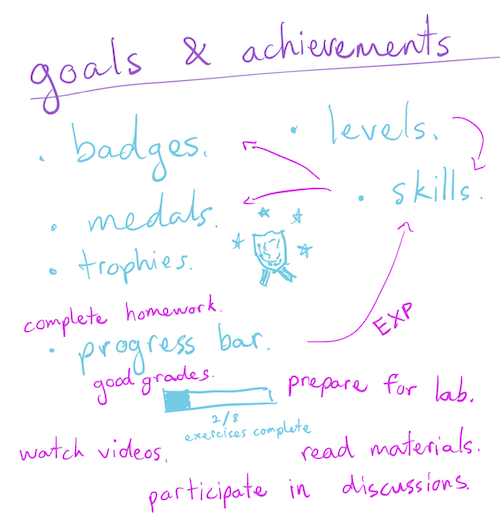 goals & achievements
• badges.
• levels.
• medals.
• skills.
• trophies.
complete homework.
• progress bar.
EXP
good grades.
prepare for lab.
2/8
exercices complete
watch videos.
read materials.
participate in discussions.